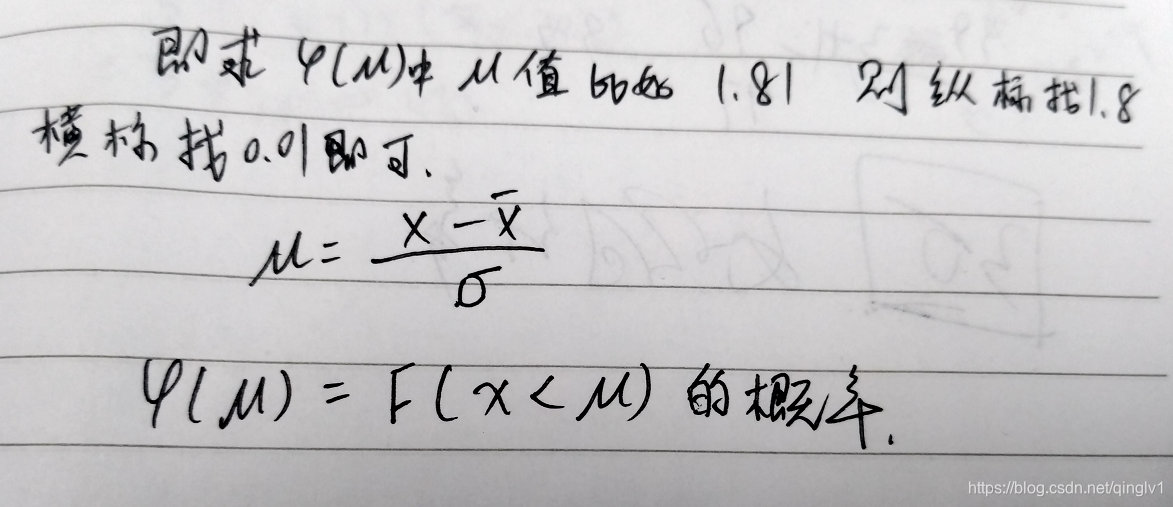 即求 φ(μ)中 μ值 比如 1.81 则纵标找1.8
横标找0.01即可.
μ = (x - x̄) / σ
φ(μ) = F(x < μ) 的概率.
https://blog.csdn.net/qinglv1